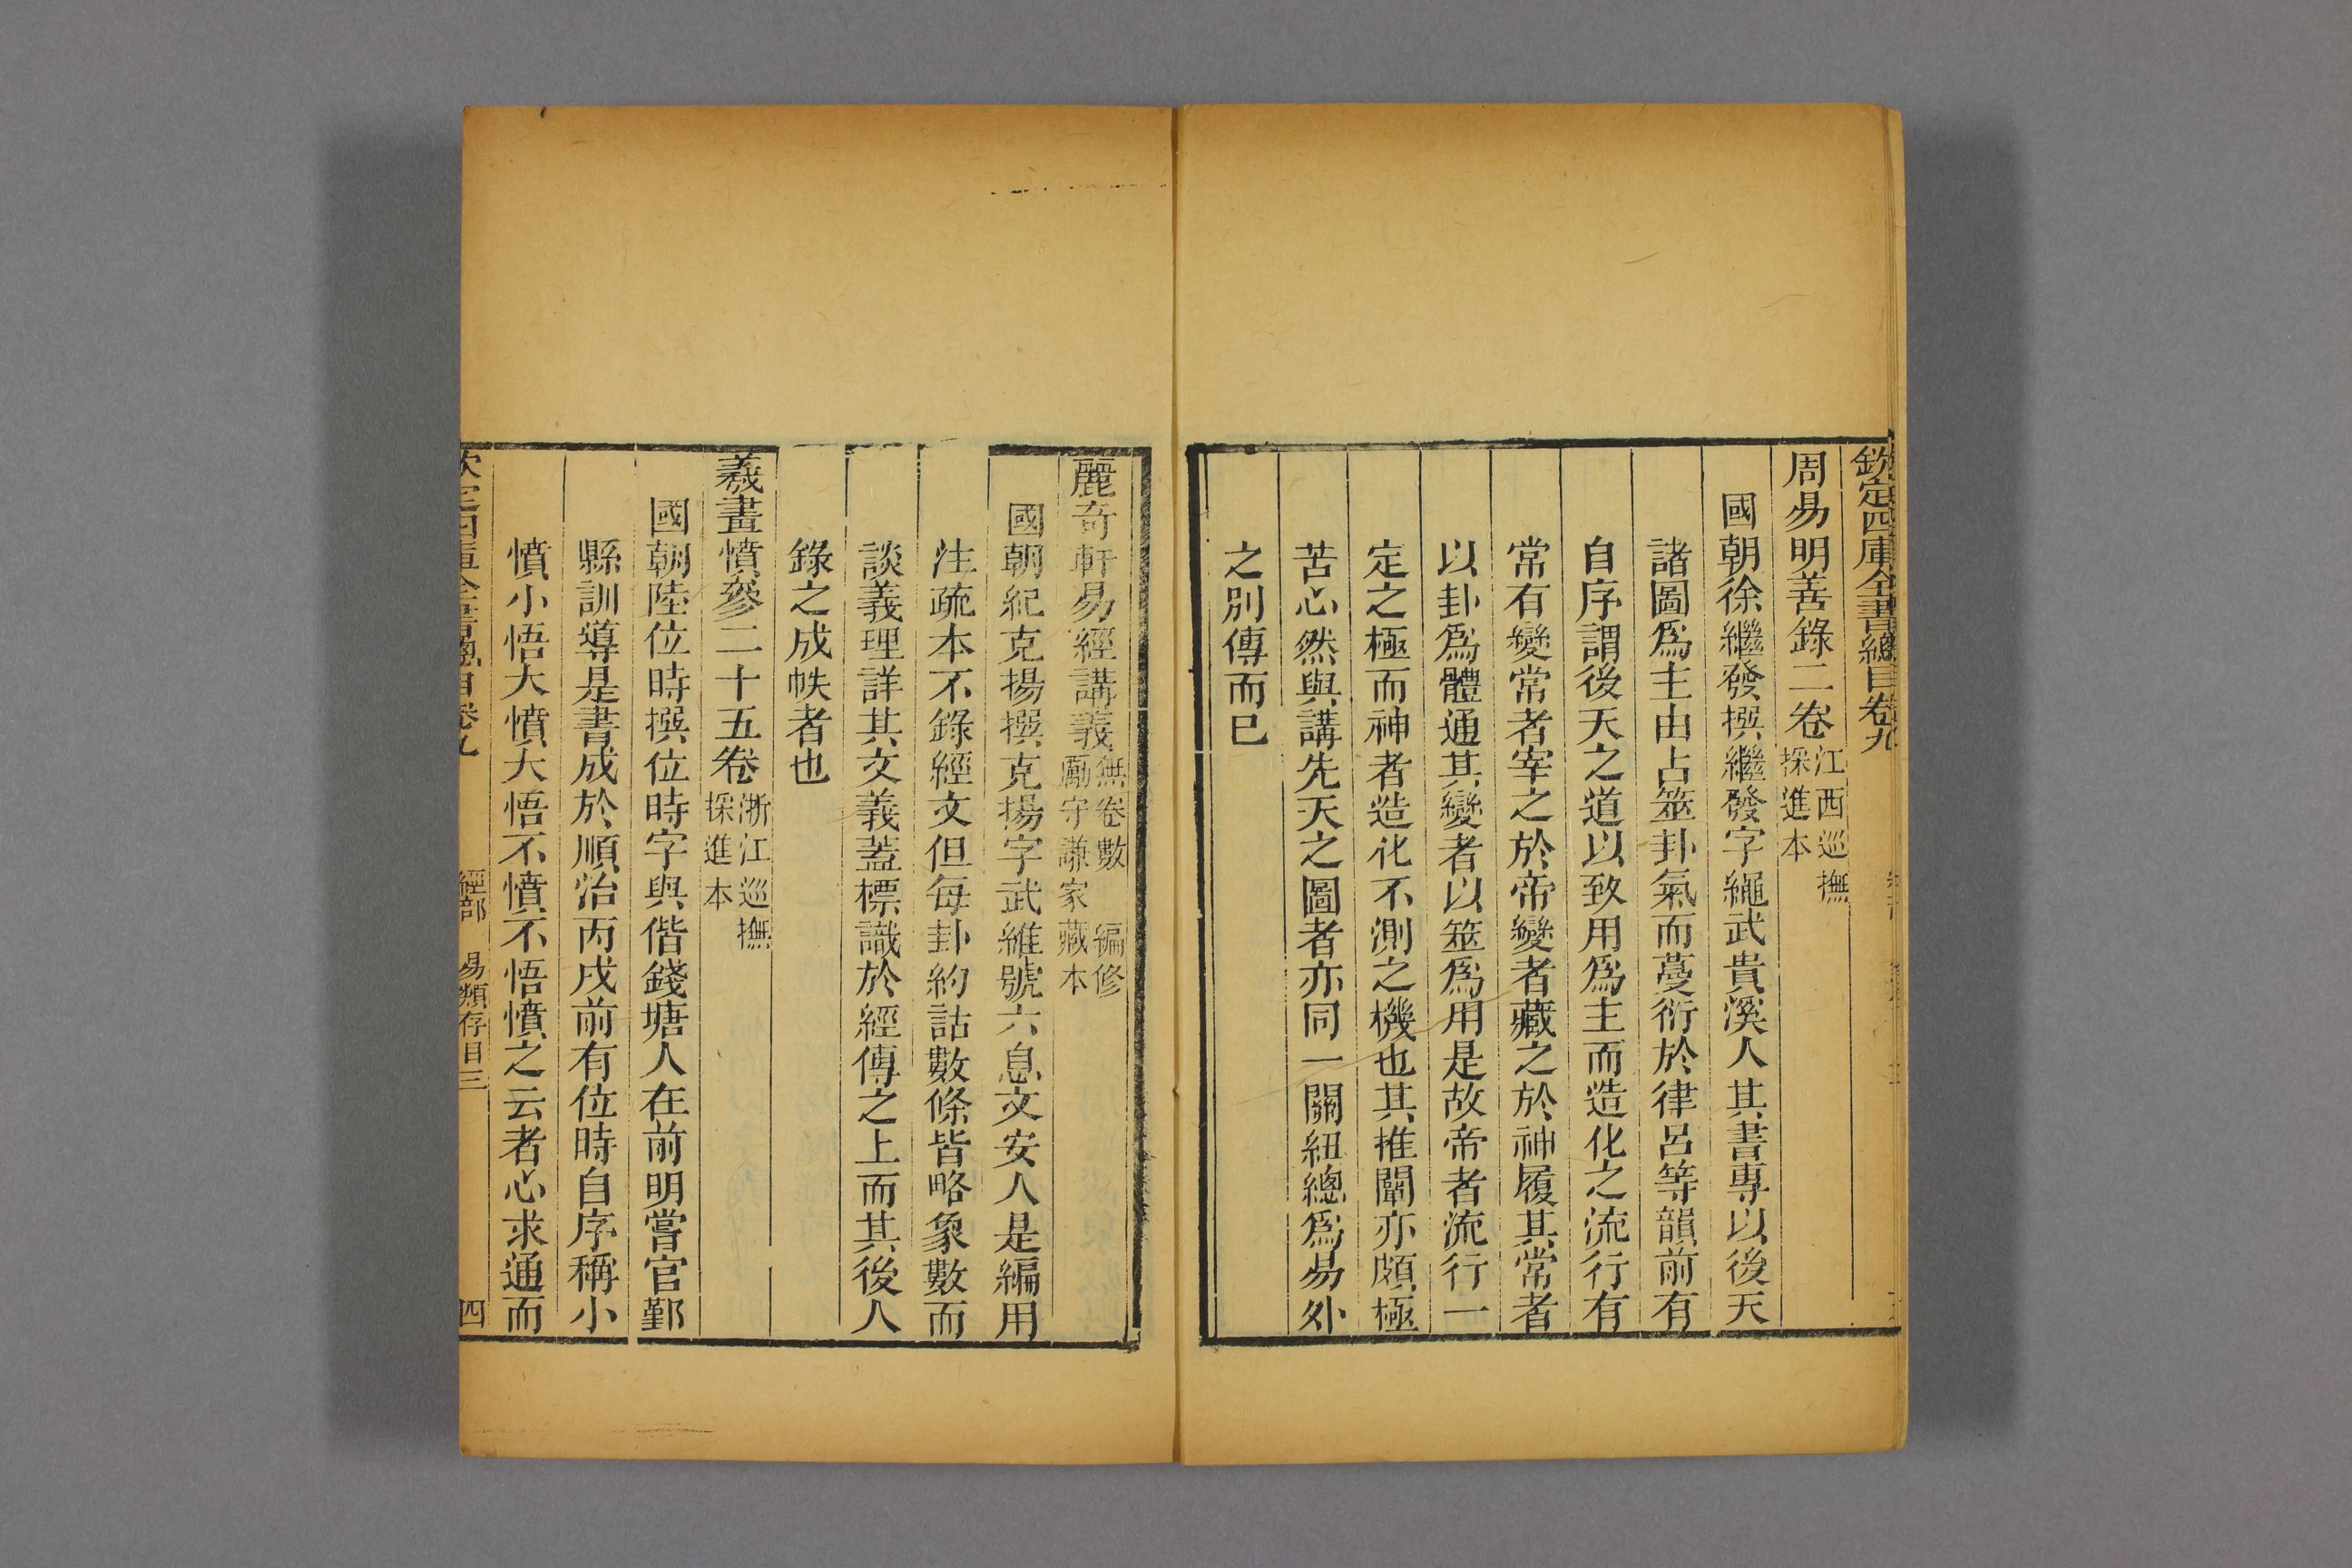 欽定四庫全書總目卷九
周易明善錄二卷江西巡撫採進本
國朝徐繼發撰繼發字繩武貴溪人其書專以後天
諸圖爲主由占筮卦氣而蔓衍於律呂等韻前有
自序謂後天之道以致用爲主而造化之流行有
常有變常者宰之於帝變者藏之於神履其常者
以卦爲體通其變者以筮爲用是故帝者流行一
定之極而神者造化不測之機也其推闡亦頗極
苦心然與講先天之圖者亦同一關紐總爲易外
之別傳而已
麗奇軒易經講義無卷數 編修勵守謙家藏本
國朝紀克揚撰克揚字武維號六息文安人是編用
注疏本不錄經文但每卦約詁數條皆略象數而
談義理詳其文義蓋標識於經傳之上而其後人
錄之成帙者也
羲畫憤參二十五卷浙江巡撫採進本
國朝陸位時撰位時字與偕錢塘人在前明嘗官鄞
縣訓導是書成於順治丙戌前有位時自序稱小
憤小悟大憤大悟不憤不悟憤之云者心求通而
欽定四庫全書總目卷九 經部 易類存目三 四